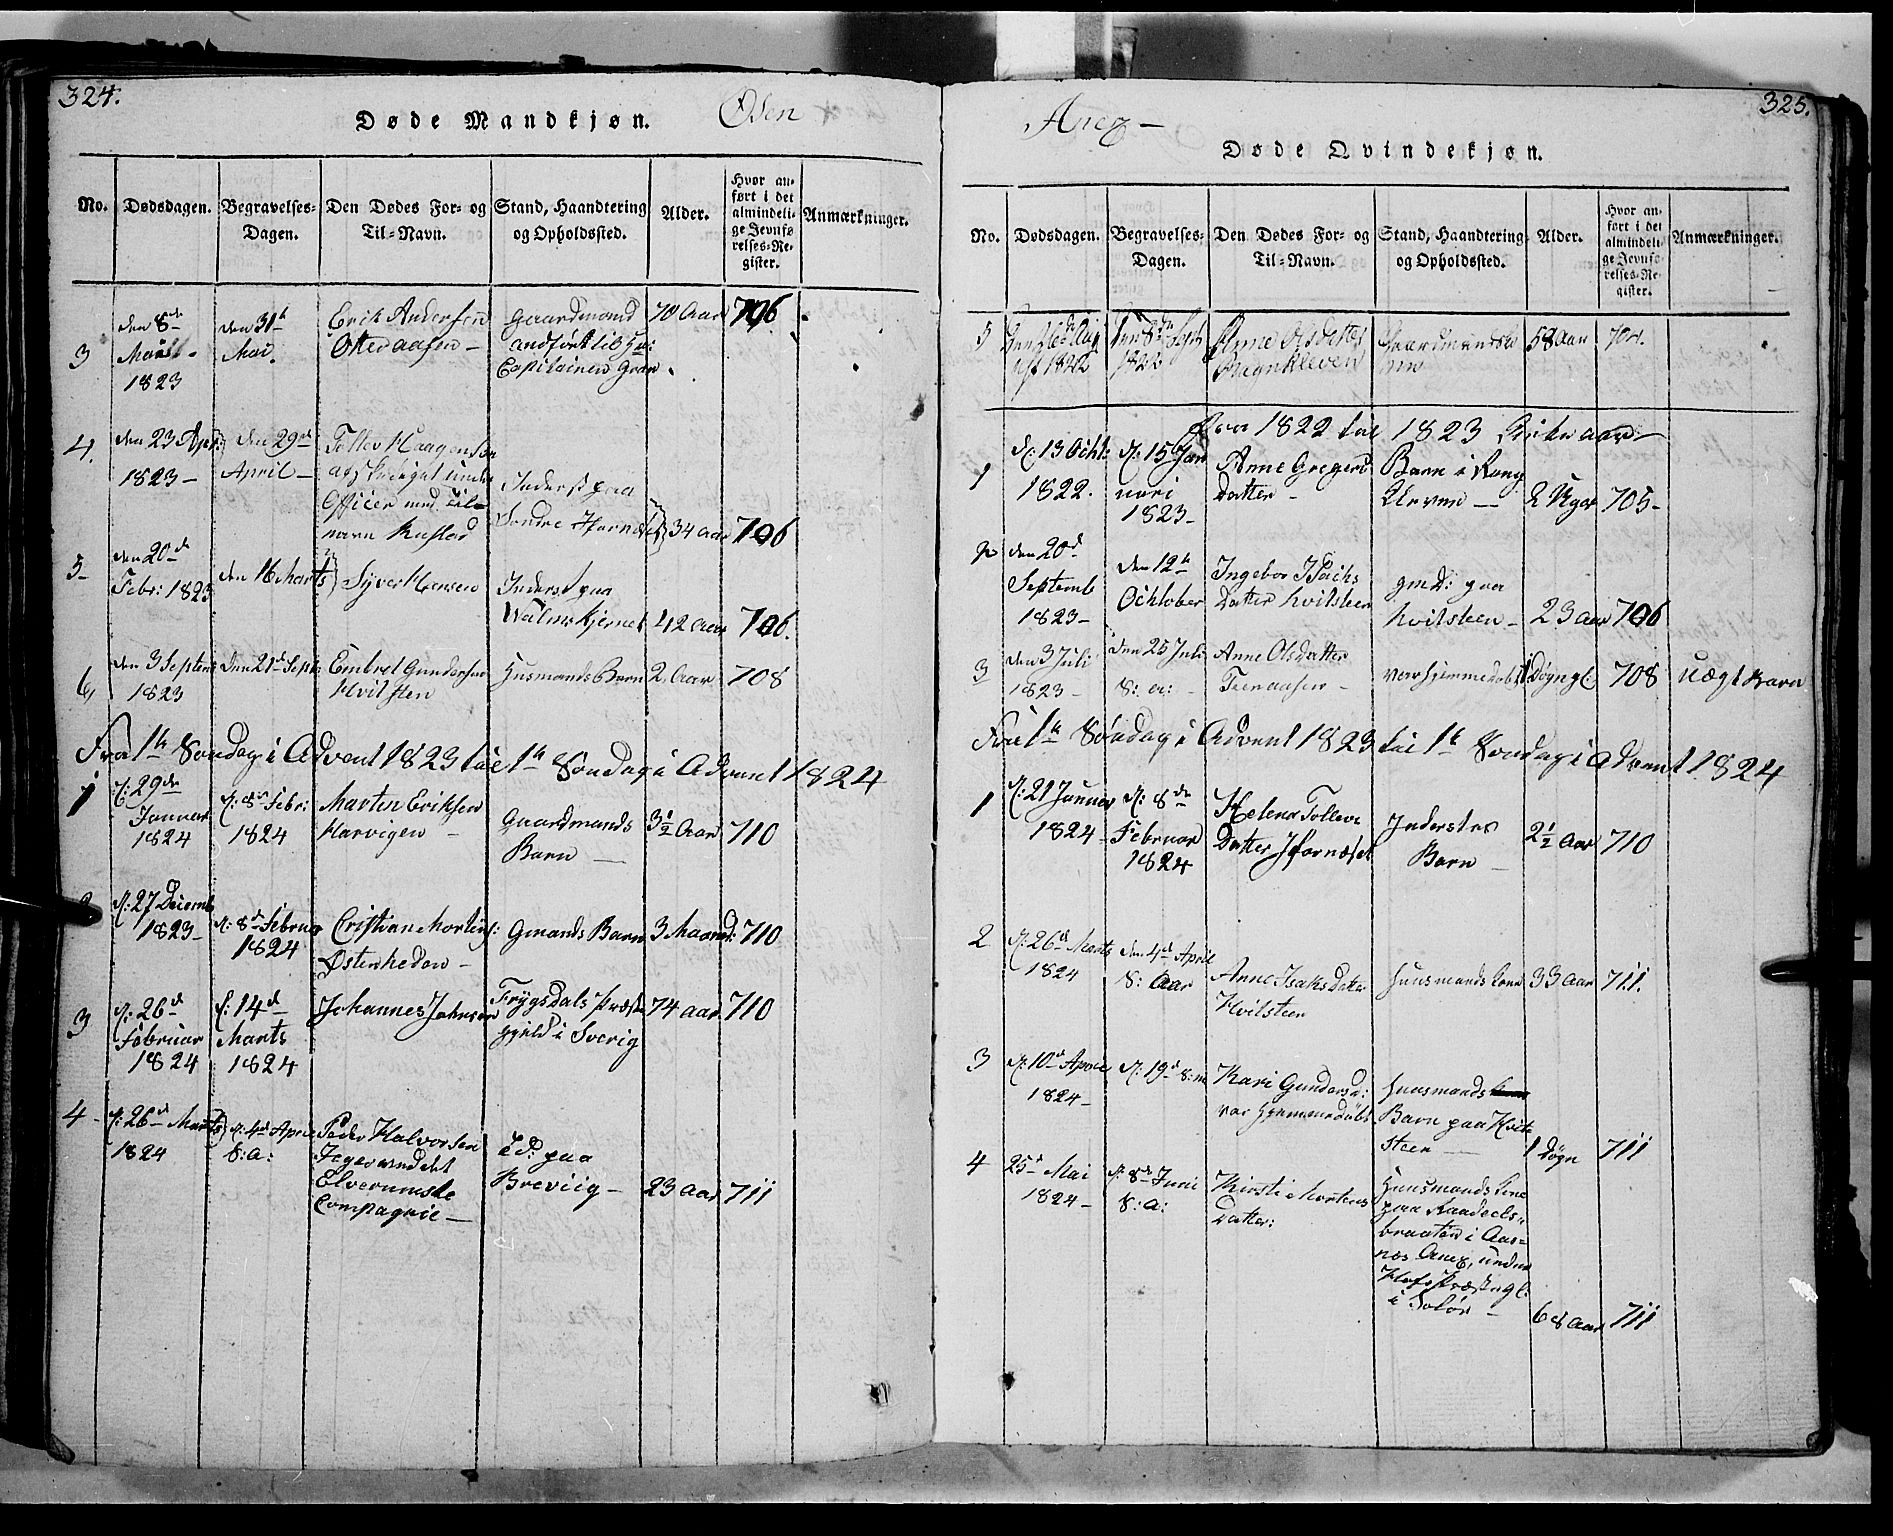 324.
Døde Mandkjøn. Osen
No. Dødsdagen. Begravelses-Dagen. Den Dødes For- og Til-Navn. Stand, Haandtering og Opholdssted. Alder. Hvor anført i det almindelige Jevnførelses-Register. Anmærkninger.
3 den 8de
1823
den 31te
Mai.
Erik Andersen
Otteraasen
Gaardmand
70 Aar 706
4. den 23 Apr:
1823 –
den 29de
April –
Tollev Haagensen
afskediget under
Officer med til-
navn Rustad
Inderst paa
Søndre Hornæset
34 aar 706
5 den 20de
Febr: 1823
den 16 Marts
Syver Hansen
Inderst paa
42 aar 706.
6 den 3 Septemb
1823
den 21de Sept:
Embret Gundersen
Hvilsten
Husmands Barn 2 Aar 708
Fra 1te Søndag i Advent 1823 til 1te Søndag i Advent 1824
1 d: 29de
Januar
1824
d: 8de Febr:
1824
Morten Eriksen
Harvigen –
Gaardmands
Barn –
3½ Aar 710
2 d: 27 Decemb
1823 –
d: 8de Februar
1824
Cristian Morten:
Østenheden –
Gmands Barn 3 Maaned: 710
3 d: 26de
Februar
1824
d: 14de
Marts
1824
Johannes Johnsen
Frygsdals Præste
gjeld i Sverig
74 aar 710
4 d: 26de Marts
1824
d: 4de April
S: A:
Peder Halvorsen
Jeger ved det
Elverumske
Compagnie –
Brevig –
23 Aar 711
325.
Anex –
Døde Qvindekjøn.
No. Dødsdagen. Begravelses-Dagen. Den Dødes For- og Til-Navn. Stand, Haandtering og Opholdssted. Alder. Hvor anført i det almindelige Jevnførelses-Register. Anmærkninger.
5
ust 1822
1822
Anne Olsdatter
58 aar 704.
Fra 1822 til 1823 Kirke aar –
1 d: 13 Octbr
1822.
d: 15 Jan
uari
1823 –
Anne Gregers
Datter –
Barn i Røng
kleven –
2 Uger 705 –
2 den 20de
Septemb
1823 –
den 12te
Ochtober
Ingebor Isachs
Datter Kvilsteen
gmd: paa
Kvilsteen –
23 aar 706
3 den 3 Juli
1823 –
den 25 Juli
S: a: –
Anne Olsdatter
var hjemmedøbt 1 Døgn gl: 708 uægt Barn
Fra 1te Søndag i Advent 1823 til 1te Søndag i Advent 1824
1 d: 21 Januar
1824 –
d: 8de
Februar
1824
Helene Tolleve
Datter Hornæset
Inderstes
Barn –
2½ Aar 710
2 d: 26de Marts
1824
den 4de April
S: Aar
Anne Isaks Datter
Hvilsteen
Huusmands Kone 33 Aar 711.
3 d: 10de April
1824 –
d: 19de S: m
Kari Gundersd:
var hjemmedøbt
Huusmands
Barn paa Kvil
steen –
1 Døgn 711
4 25de Mai
1824 –
d: 8de Juni
S: A:
Kirsti Mortens
Datter:
Huusmands Kone
paa
braaten i Aas-
næs Anex, under
Hofs Præstegl:
i Solør –
68 Aar 711